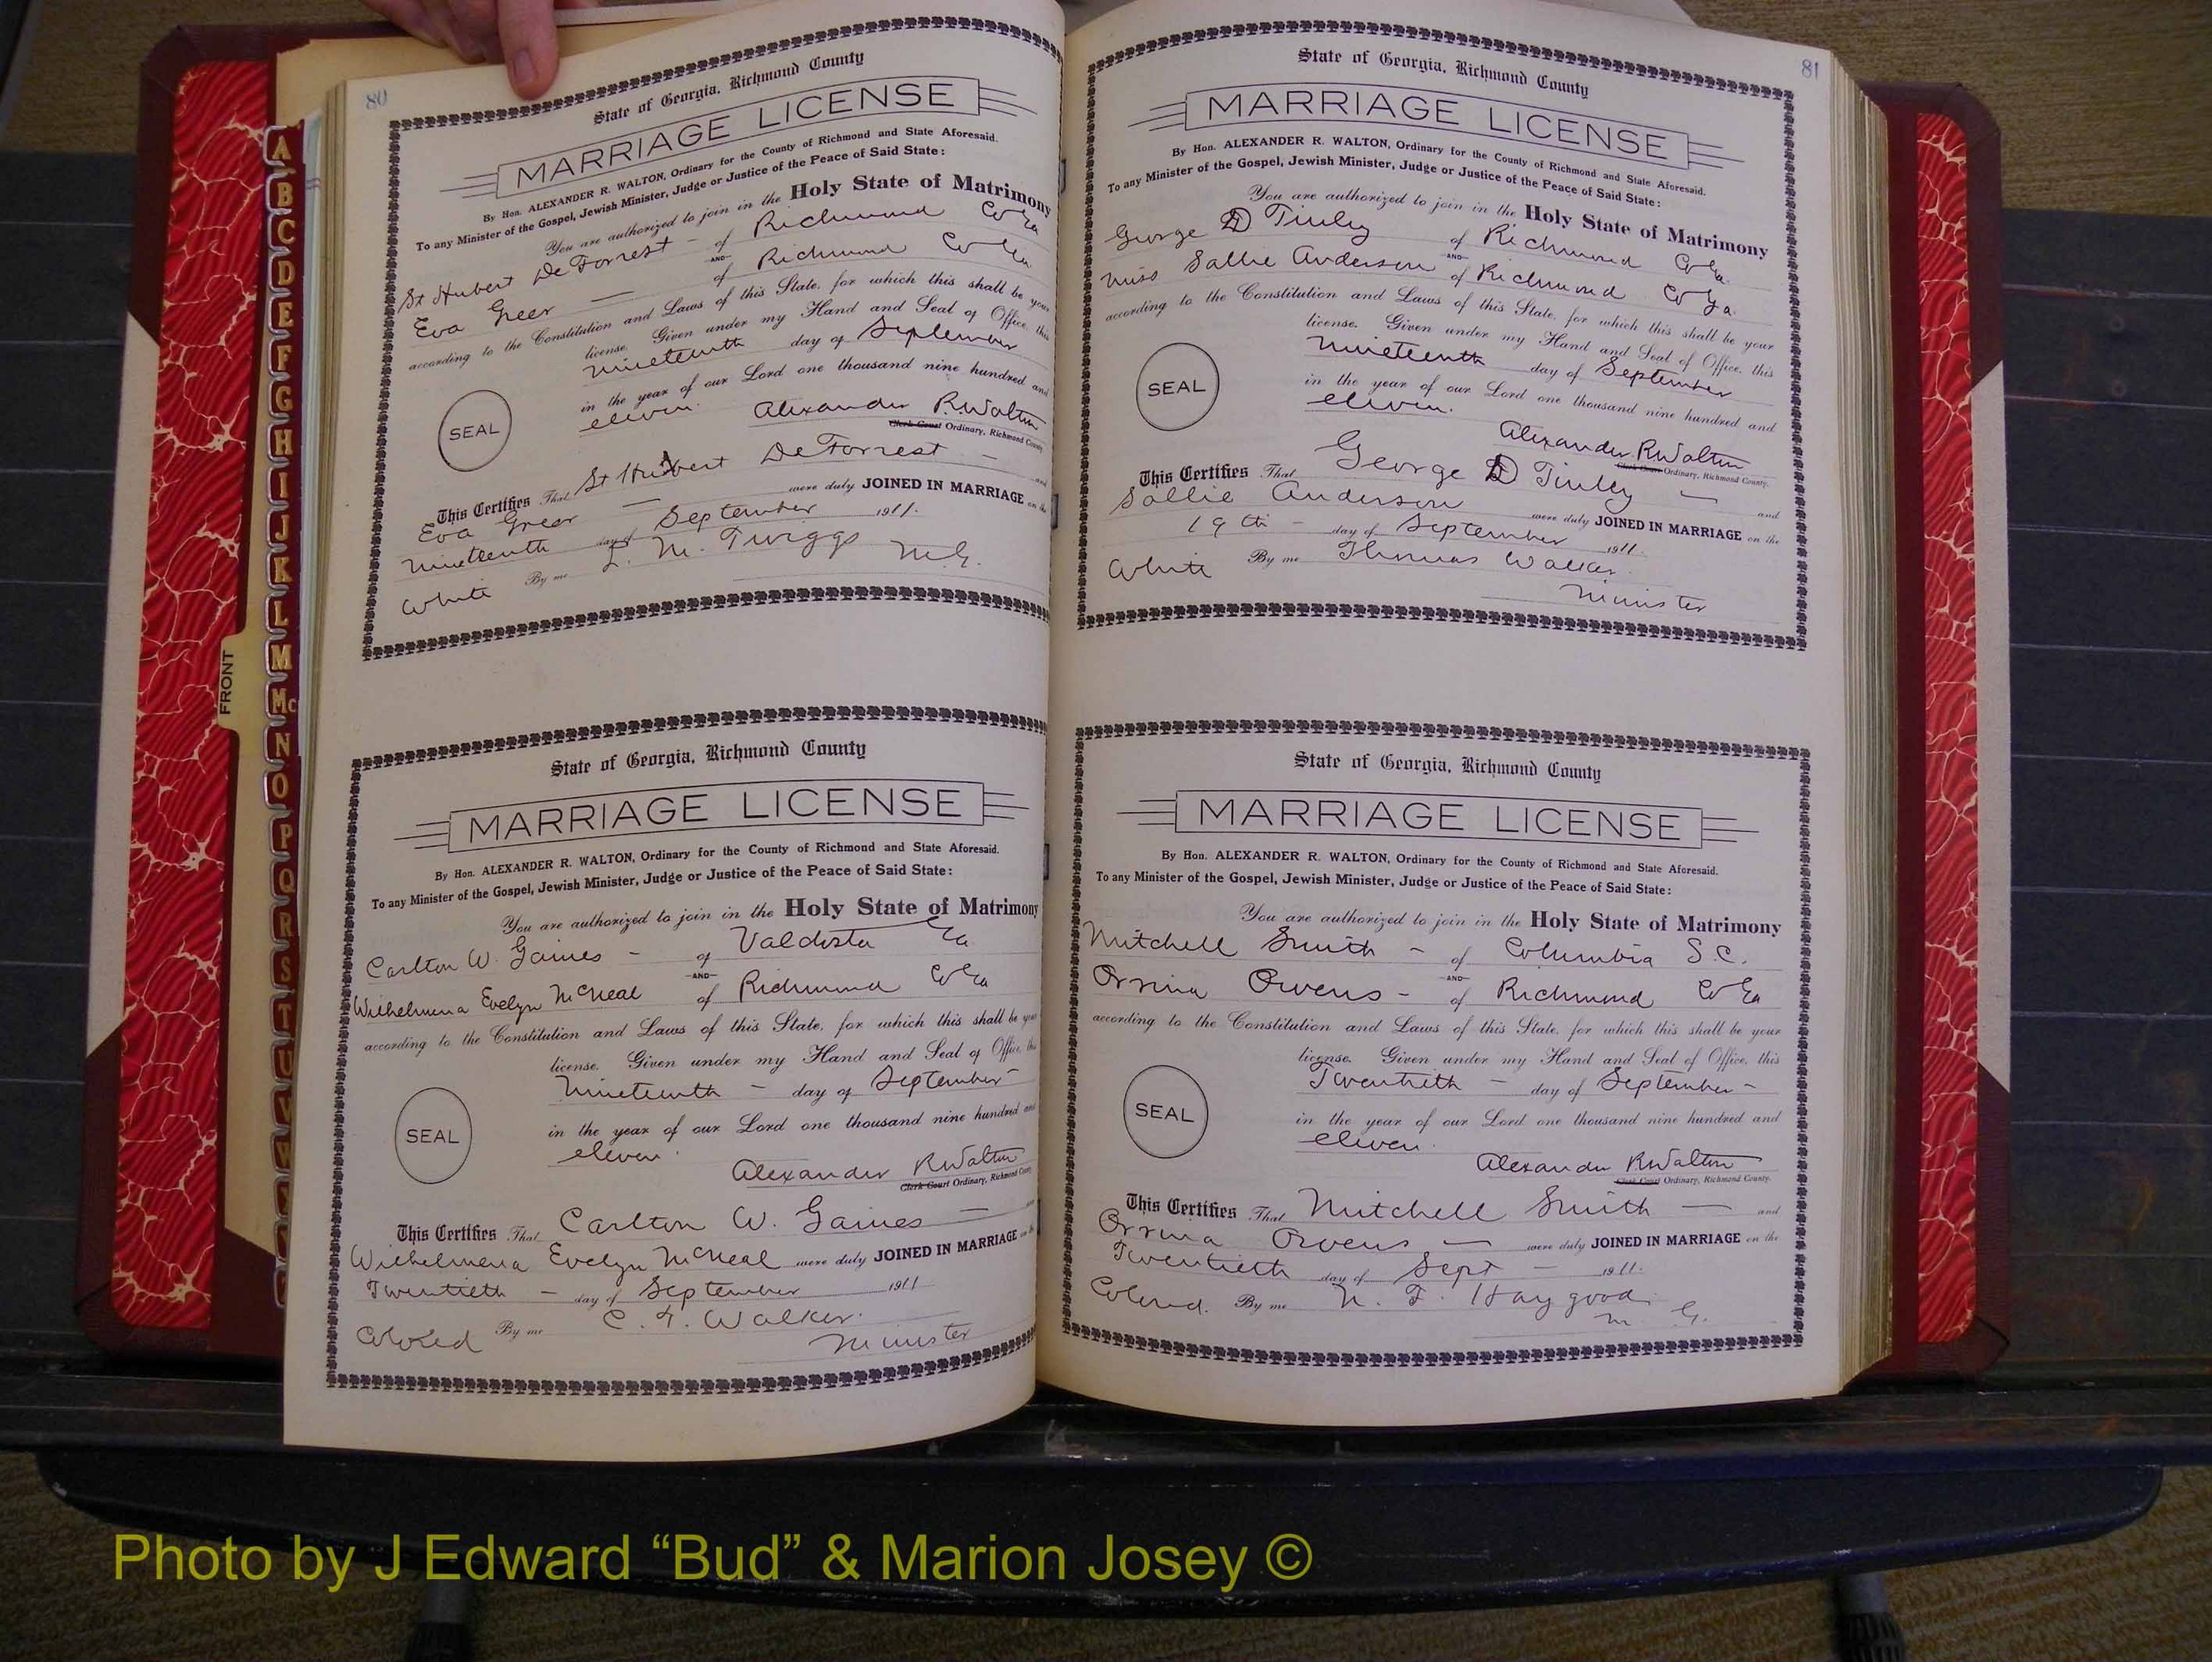 80
State of Georgia, Richmond County
MARRIAGE LICENSE
By Hon. ALEXANDER R. WALTON, Ordinary for the County of Richmond and State Aforesaid.
To any Minister of the Gospel, Jewish Minister, Judge or Justice of the Peace of Said State:
You are authorized to join in the Holy State of Matrimony
St Hubert DeForrest - of Richmond Co Ga
-AND-
Eva Greer — of Richmond Co Ga
according to the Constitution and Laws of this State, for which this shall be your
license. Given under my Hand and Seal of Office, this
nineteenth day of September
in the year of our Lord one thousand nine hundred and
eleven.
SEAL
Alexander R Walton
Clerk Court Ordinary, Richmond County
This Certifies That St Hubert DeForrest - and
Eva Greer — were duly JOINED IN MARRIAGE on the
nineteenth day of September 1911.
White By me L. M. Twiggs M.G.
State of Georgia, Richmond County
MARRIAGE LICENSE
By Hon. ALEXANDER R. WALTON, Ordinary for the County of Richmond and State Aforesaid.
To any Minister of the Gospel, Jewish Minister, Judge or Justice of the Peace of Said State:
You are authorized to join in the Holy State of Matrimony
Carlton W. Gaines - of Valdosta Ga
-AND-
Wilhelmena Evelyn McNeal of Richmond Co Ga
according to the Constitution and Laws of this State, for which this shall be your
license. Given under my Hand and Seal of Office, this
Nineteenth - day of September -
in the year of our Lord one thousand nine hundred and
eleven.
SEAL
Alexander R Walton
Clerk Court Ordinary, Richmond County
This Certifies That Carlton W. Gaines — and
Wilhelmena Evelyn McNeal were duly JOINED IN MARRIAGE on the
Twentieth - day of September 1911
Colored By me C. T. Walker.
Minister
81
State of Georgia, Richmond County
MARRIAGE LICENSE
By Hon. ALEXANDER R. WALTON, Ordinary for the County of Richmond and State Aforesaid.
To any Minister of the Gospel, Jewish Minister, Judge or Justice of the Peace of Said State:
You are authorized to join in the Holy State of Matrimony
George D Tinley of Richmond Co Ga.
-AND-
Miss Sallie Anderson of Richmond Co Ga.
according to the Constitution and Laws of this State, for which this shall be your
license. Given under my Hand and Seal of Office, this
nineteenth day of September
in the year of our Lord one thousand nine hundred and
eleven.
SEAL
Alexander R Walton
Clerk Court Ordinary, Richmond County.
This Certifies That George D Tinley — and
Sallie Anderson were duly JOINED IN MARRIAGE on the
19th - day of September 1911.
White By me Thomas Walker.
Minister
State of Georgia, Richmond County
MARRIAGE LICENSE
By Hon. ALEXANDER R. WALTON, Ordinary for the County of Richmond and State Aforesaid.
To any Minister of the Gospel, Jewish Minister, Judge or Justice of the Peace of Said State:
You are authorized to join in the Holy State of Matrimony
Mitchell Smith - of Columbia S.C.
-AND-
Orrina Owens - of Richmond Co Ga
according to the Constitution and Laws of this State, for which this shall be your
license. Given under my Hand and Seal of Office, this
Twentieth - day of September -
in the year of our Lord one thousand nine hundred and
eleven.
SEAL
Alexander R Walton
Clerk Court Ordinary, Richmond County.
This Certifies That Mitchell Smith — and
Orrina Owens — were duly JOINED IN MARRIAGE on the
Twentieth day of Sept - 1911.
Colored. By me N. F. Haygood
M. G.
A
B
C
D
E
F
G
H
I
J
K
L
M
Mc
N
O
P
Q
R
S
T
U
V
W
FRONT
Photo by J Edward “Bud” & Marion Josey ©